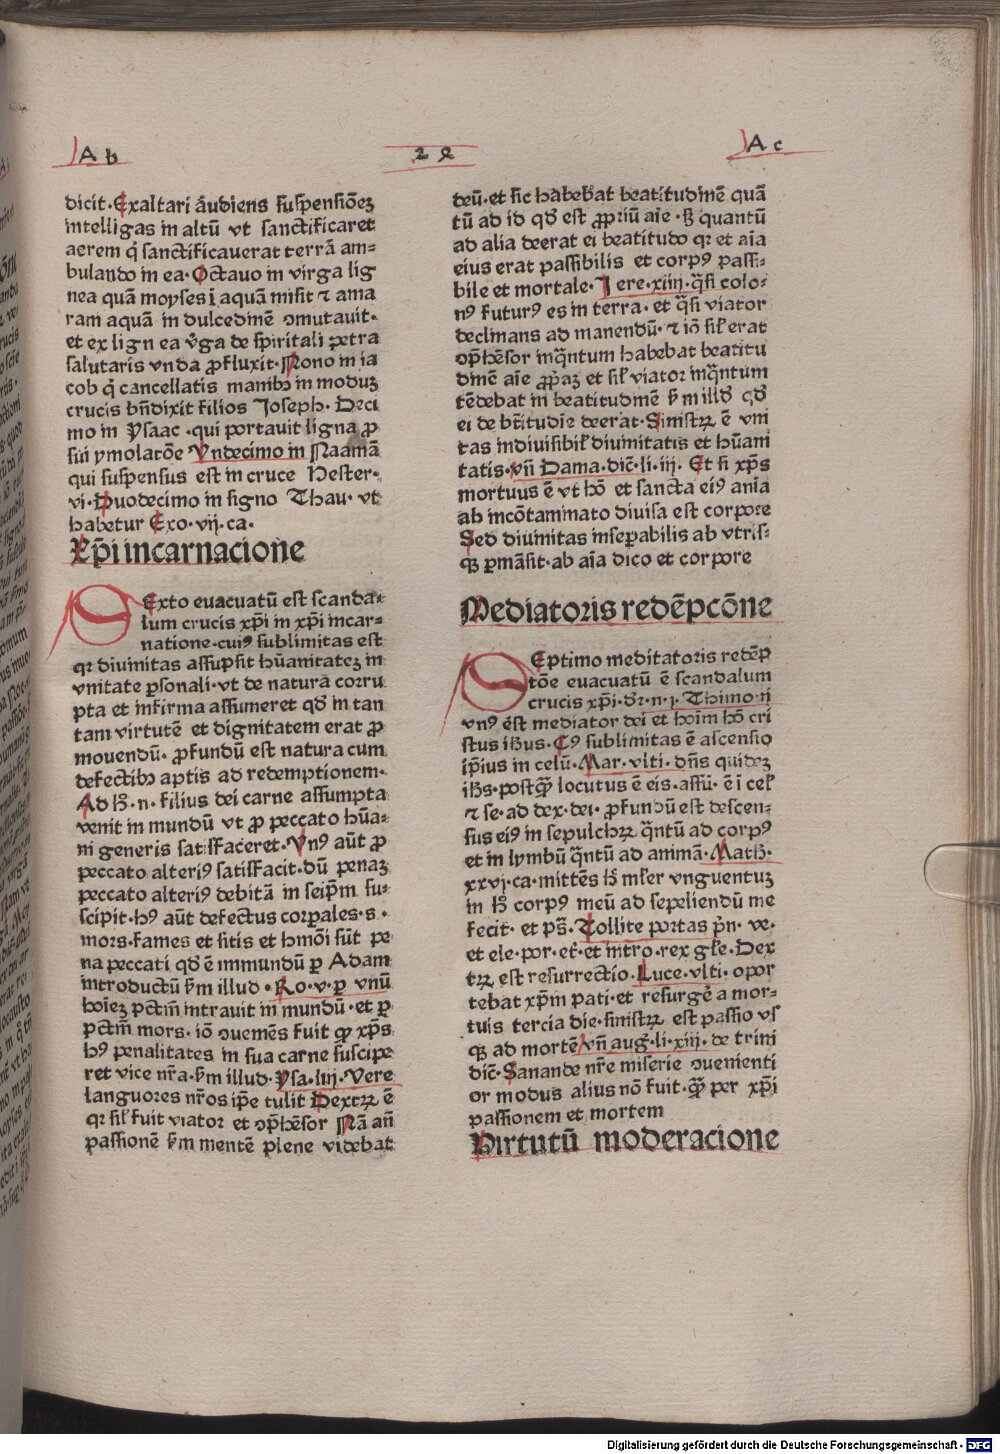 A b
2 8
A c
dicit·Exaltari audiens suspensiōeʒ
intelligas in altū vt sanctificaret
aerem q̇ sanctificauerat terrā am⸗
bulando in ea·Octauo in virga lig
nea quā moyses ī aquam misit ⁊ ama
ram aquam in dulcedinē ꝯmutauit·
et ex lign ea v̇ga de spiritali petra
salutaris vnda ꝓfluxit·Nono in ia
cob q̇ cancellatis manibꝫ in moduʒ
crucis bn̄dixit filios Joseph· Deci
mo in Ysaac ·qui portauit ligna ꝓ
sui ymolatōe Vndecimo in Naamā
qui suspensus est in cruce Hester·
vi·Duodecimo in signo Thau· vt
habetur Exo·vij·ca·
Xp̄i incarnacione
SExto euacuatū est scanda⸗
lum crucis xp̄i in xp̄i incar⸗
natione·cuiꝰ sublimitas est
qꝛ diuinitas assupsit hūanitateʒ in
vnitate ꝑsonali·vt de natura corru
pta et infirma assumeret qd̄ in tan
tam virtutē et dignitatem erat ꝓ
mouendū· ꝓfundū est natura cum
defectibꝫ aptis ad redemptionem·
Ad hꝫ·n·filius dei carne assumpta
venit in mundū vt ꝓ peccato hūa⸗
ni generis satisfaceret·Vnꝰ aūt ꝓ
peccato alteriꝰ satisfacit·dū penaʒ
peccato alteriꝰ debitā in seip̄m su⸗
scipit·hꝰ aūt defectus corpales·s·
mors·fames et sitis et hmōi sūt pe
na peccati qd̄ ē immundū ꝑ Adam
introductū ẜm illud ·Ro·v·ꝑ vnū
hoieʒ pctm̄ intrauit in mundū·et ꝑ
pctm̄ mors· iō ꝯueniēs fuit ꝙ xp̄s
hꝰ penalitates in sua carne suscipe
ret vice nr̄a·ẜm illud·Ysa·liij·Vere
languores nr̄os ip̄e tulit Dextꝝ ē
qꝛ sil̄ fuit viator et ꝯp̄hēsor Nā añ
passionē ẜm mentē plene videbat
deū·et sic habebat beatitudinē quā
tū ad id qd̄ est ꝓpriū aīe ·ß quantū
ad alia deerat ei beatitudo qꝛ et aīa
eius erat passibilis et corpꝰ passi⸗
bile et mortale·Jere·xiiij·q̄si colo⸗
nꝰ futurꝰ es in terra· et q̄si viator
declinans ad manendū· ⁊ iō sil̄ erat
ꝯp̄hēsor inq̄ntum habebat beatitu
dinē aīe ꝓpaʒ et sil̄ viator inq̄ntum
tēdebat in beatitudinē ẜm illd̄ qd̄
ei de bt̄itudīe deerat·Sinistꝝ ē vni
tas indiuisibil̄ diuinitatis et hūani
tatis·vn̄ Dama·dic̄·li·iij· Et si xp̄s
mortuus ē vt hō et sancta eiꝰ ania
ab incōtaminato diuisa est corpore
Sed diuinitas inseꝑabilis ab vtris⸗
qꝫ ꝑmāsit·ab aīa dico et corpore
Mediatoris redēpcōne
SEptimo meditatoris redēp
tōe euacuatū ē scandalum
crucis xp̄i·dꝛ·n·j·Thimo·ij
vnꝰ ēst mediator dei et hoīm hō cri
stus ih̄us·Cꝰ sublimitas ē ascensio
ip̄ius in celū·Mar·vlti·dn̄s quideʒ
ih̄s·postꝙ̄ locutus ē eis·assū· ē ī cel̄
⁊ se·ad dex·dei·ꝓfundū est descen⸗
sus eiꝰ in sepulchꝝ q̄ntū ad corpꝰ
et in lymbū q̄ntū ad animā·Math̄·
xxvj·ca·mittēs h̄ mĺier vnguentuʒ
in h̄ corpꝰ meū ad sepeliendū me
fecit· et ps̄·Tollite portas pn̄· ve·
et ele·por·et̄·et intro·rex gl̄e·Dex
tꝝ est resurrectio·Luce·vlti·opor
tebat xp̄m pati·et resurgē a mor⸗
tuis tercia die·sinistꝝ est passio vs
qꝫ ad mortē/vn̄ aug·li·xiij·de trini
dic̄·Sanande nr̄e miserie ꝯuenienti
or modus alius nō fuit·ꝙ̄ per xp̄i
passionem et mortem
Virtutū moderacione
Digitalisierung gefördert durch die Deutsche Forschungsgemeinschaft · DFG